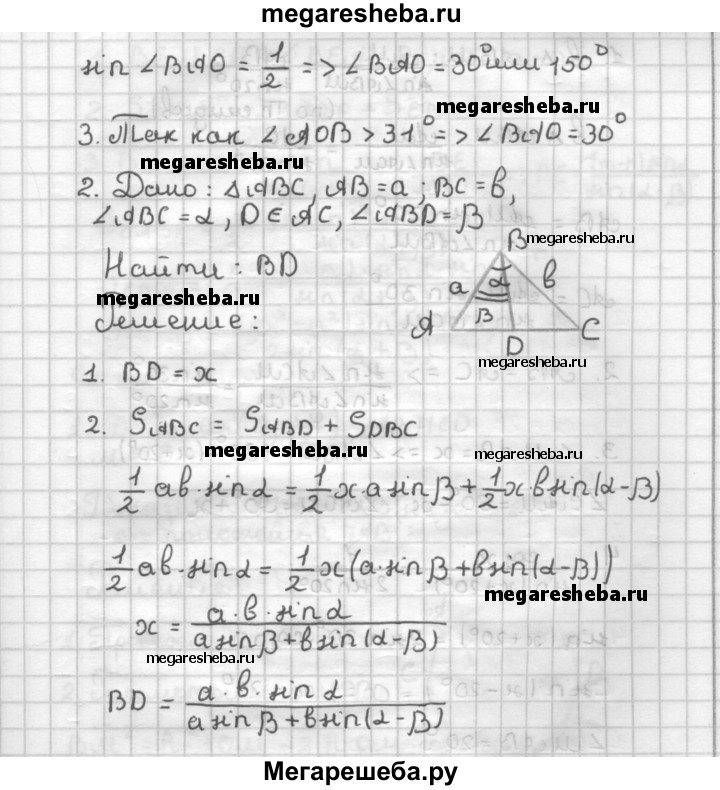 megaresheba.ru
sin ∠BAO = 1/2 => ∠BAO = 30° или 150°
megaresheba.ru
3. Так как ∠AOB > 31° => ∠BAO = 30°
megaresheba.ru
2. Дано: △ABC, AB = a; BC = b,
∠ABC = α, D ∈ AC, ∠ABD = β
B megaresheba.ru
Найти: BD
megaresheba.ru
a α b
Решение:
A β C
D
megaresheba.ru
1. BD = x
2. S_ABC = S_ABD + S_DBC
megaresheba.ru
megaresheba.ru
1/2 ab·sin α = 1/2 x·a sin β + 1/2 x·b sin(α-β)
1/2 ab·sin α = 1/2 x(a·sin β + b sin(α-β))
megaresheba.ru
x = a·b·sin α / a sin β + b sin(α-β)
megaresheba.ru
BD = a·b·sin α / a sin β + b sin(α-β)
Мегарешеба.ру